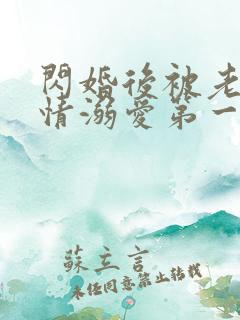 閃婚後被老
情溺愛第一
蘇立言
未經同意禁止轉載